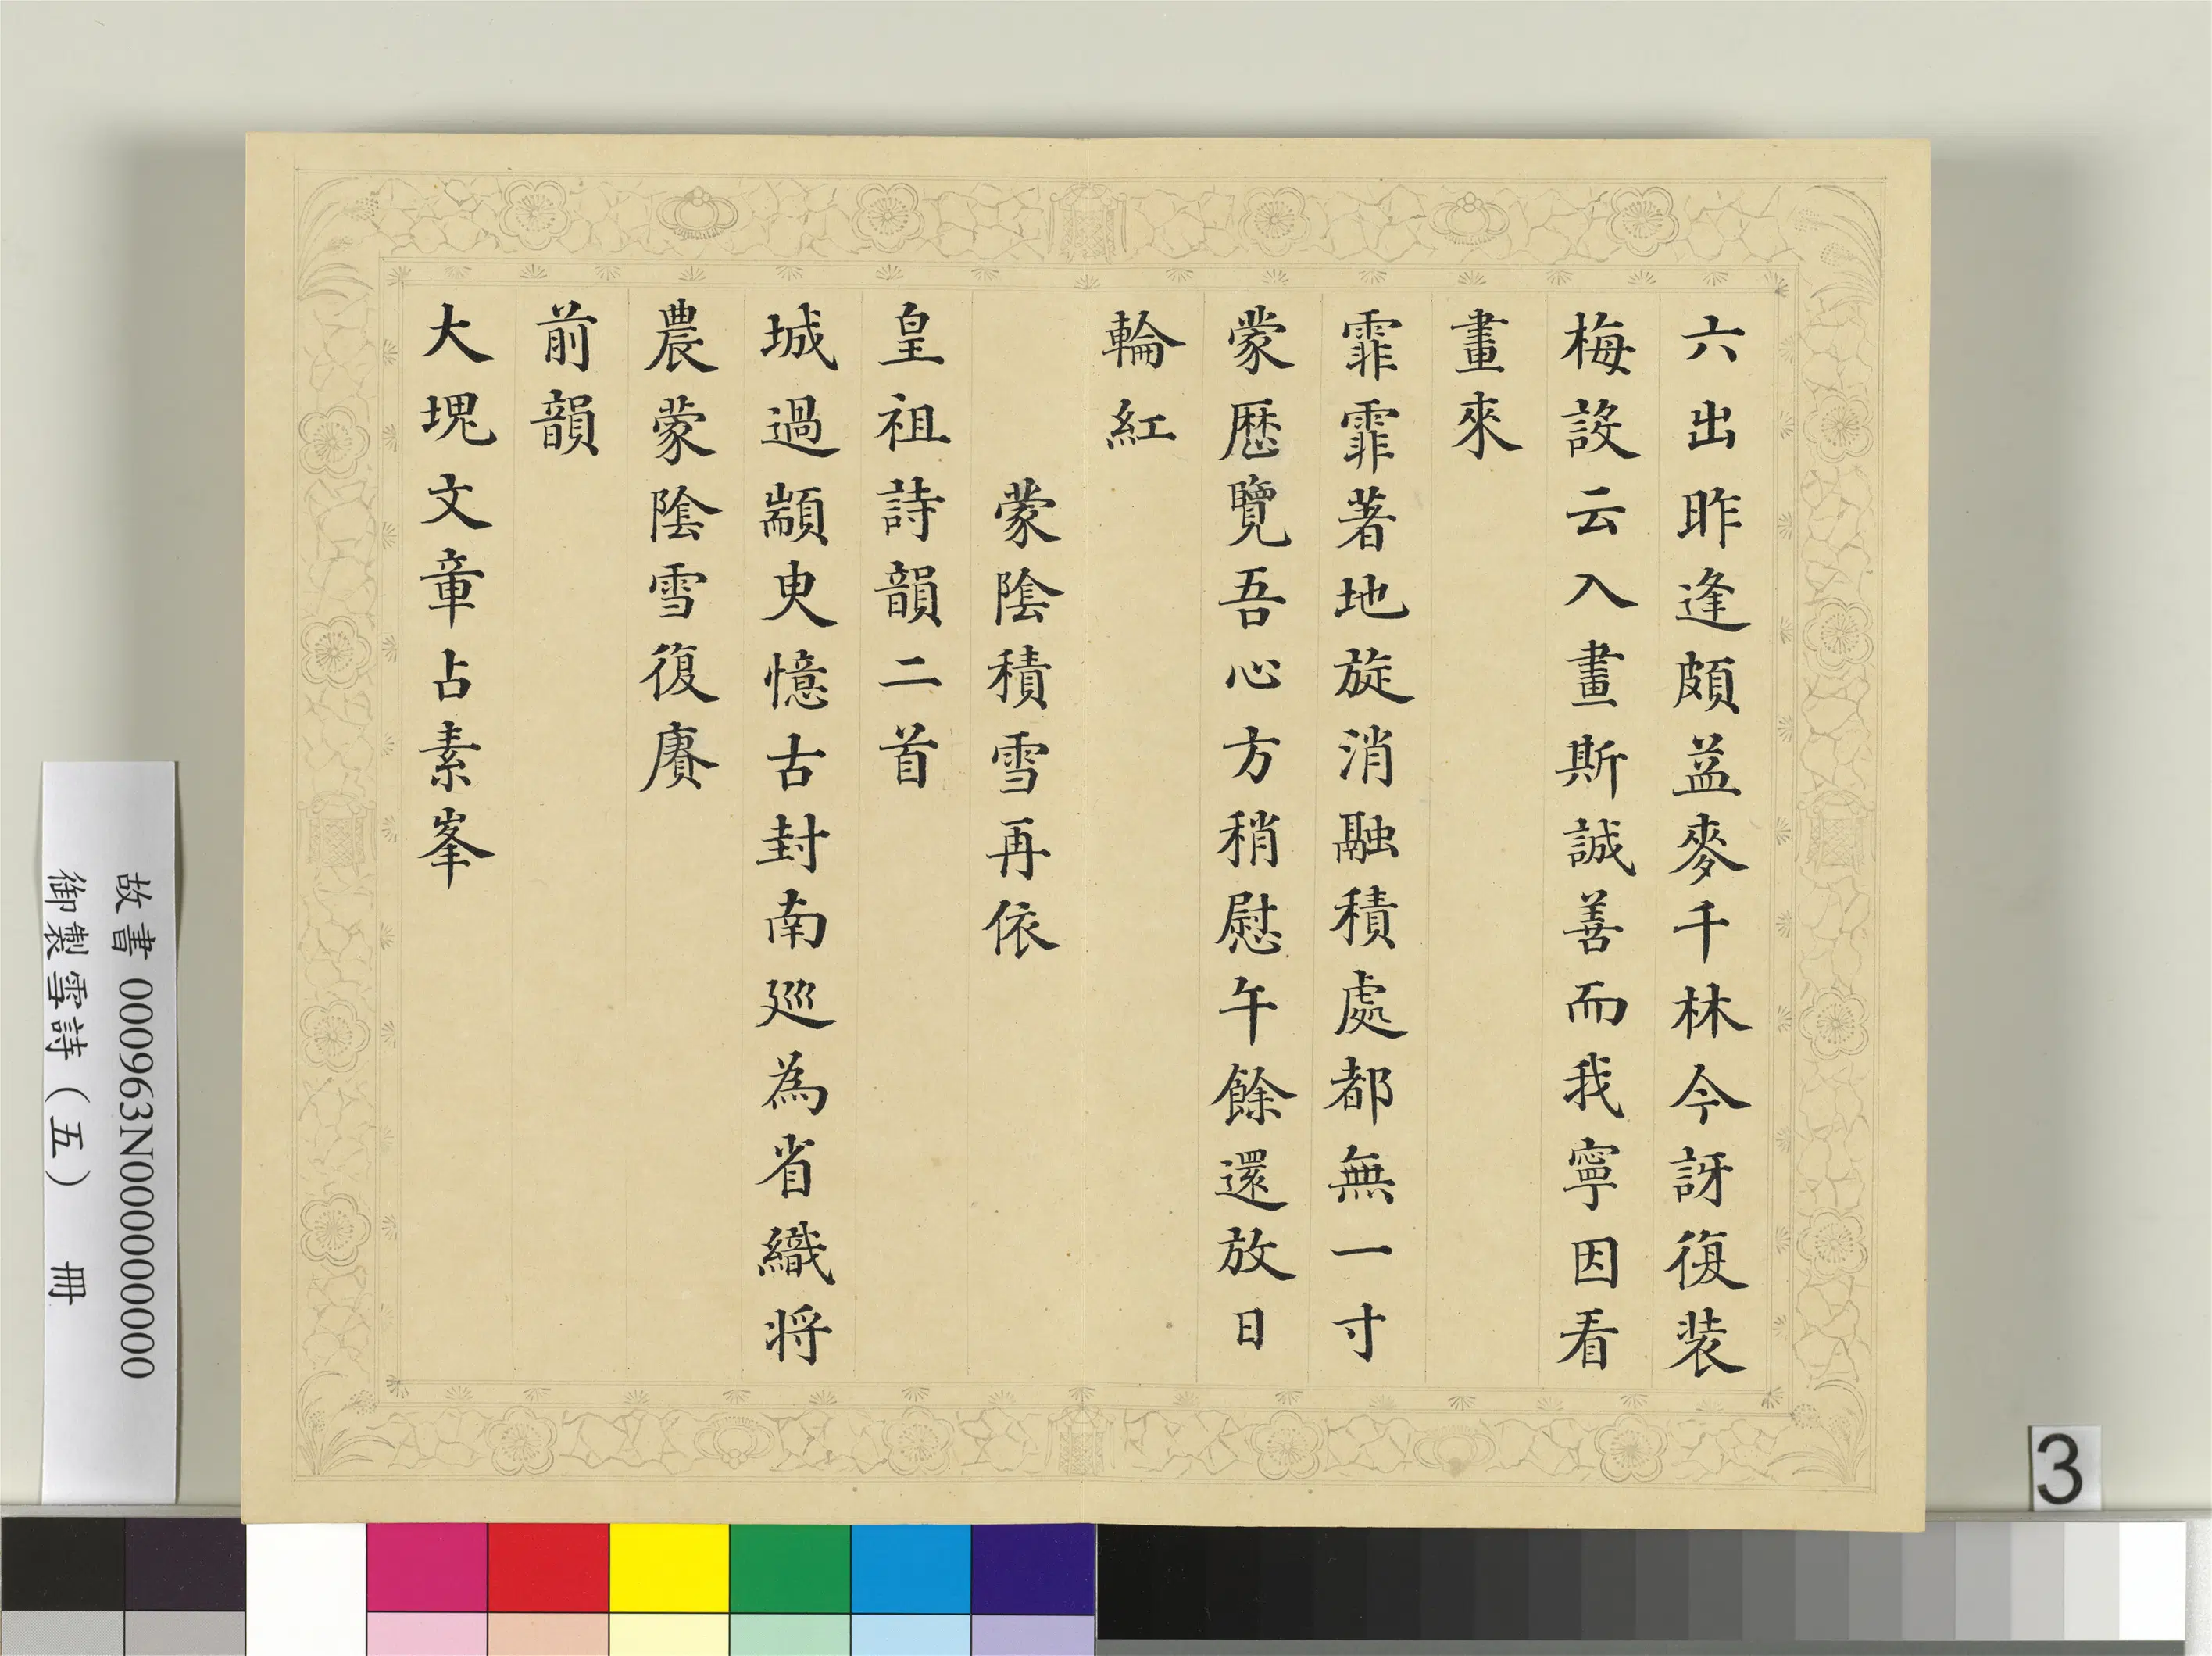 六出昨逢頗益麥千林今訝復裝
梅設云入畫斯誠善而我寧因看
畫來
霏霏著地旋消融積處都無一寸
蒙歷覽吾心方稍慰午餘還放日
輪紅
蒙陰積雪再依
皇祖詩韻二首
城過顓臾憶古封南巡為省織將
農蒙陰雪復賡
前韻
大塊文章占素峯
故書 000963N000000000
御製雪詩（五） 冊
3